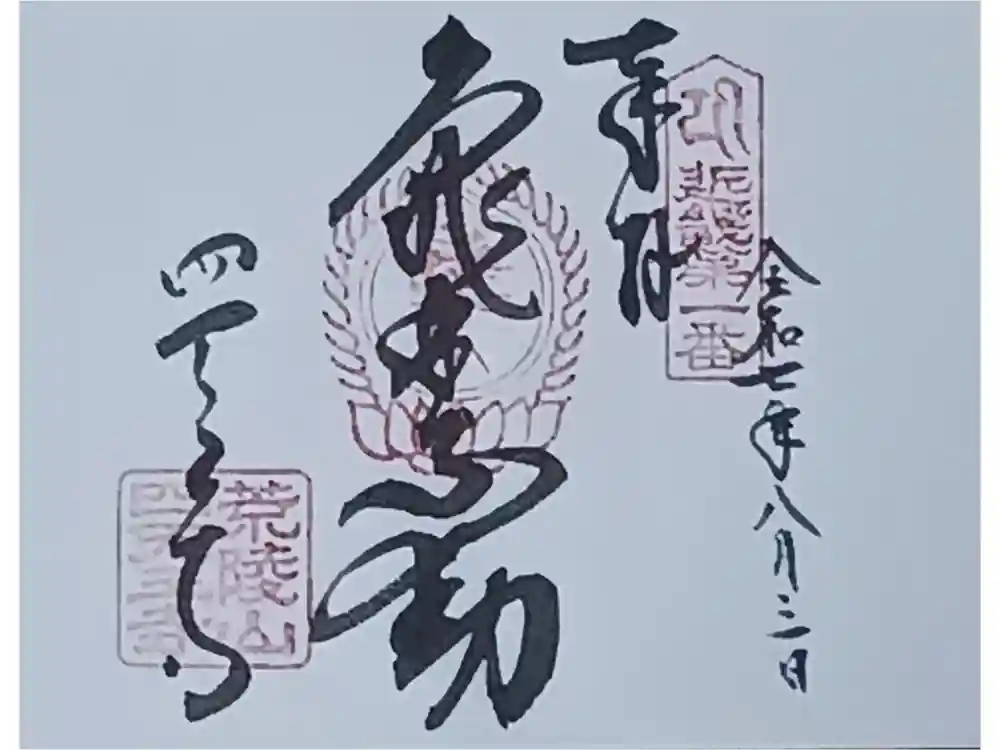 奉拝
近畿第一番
令和七年八月三日
亀井不動
四天王寺
荒陵山